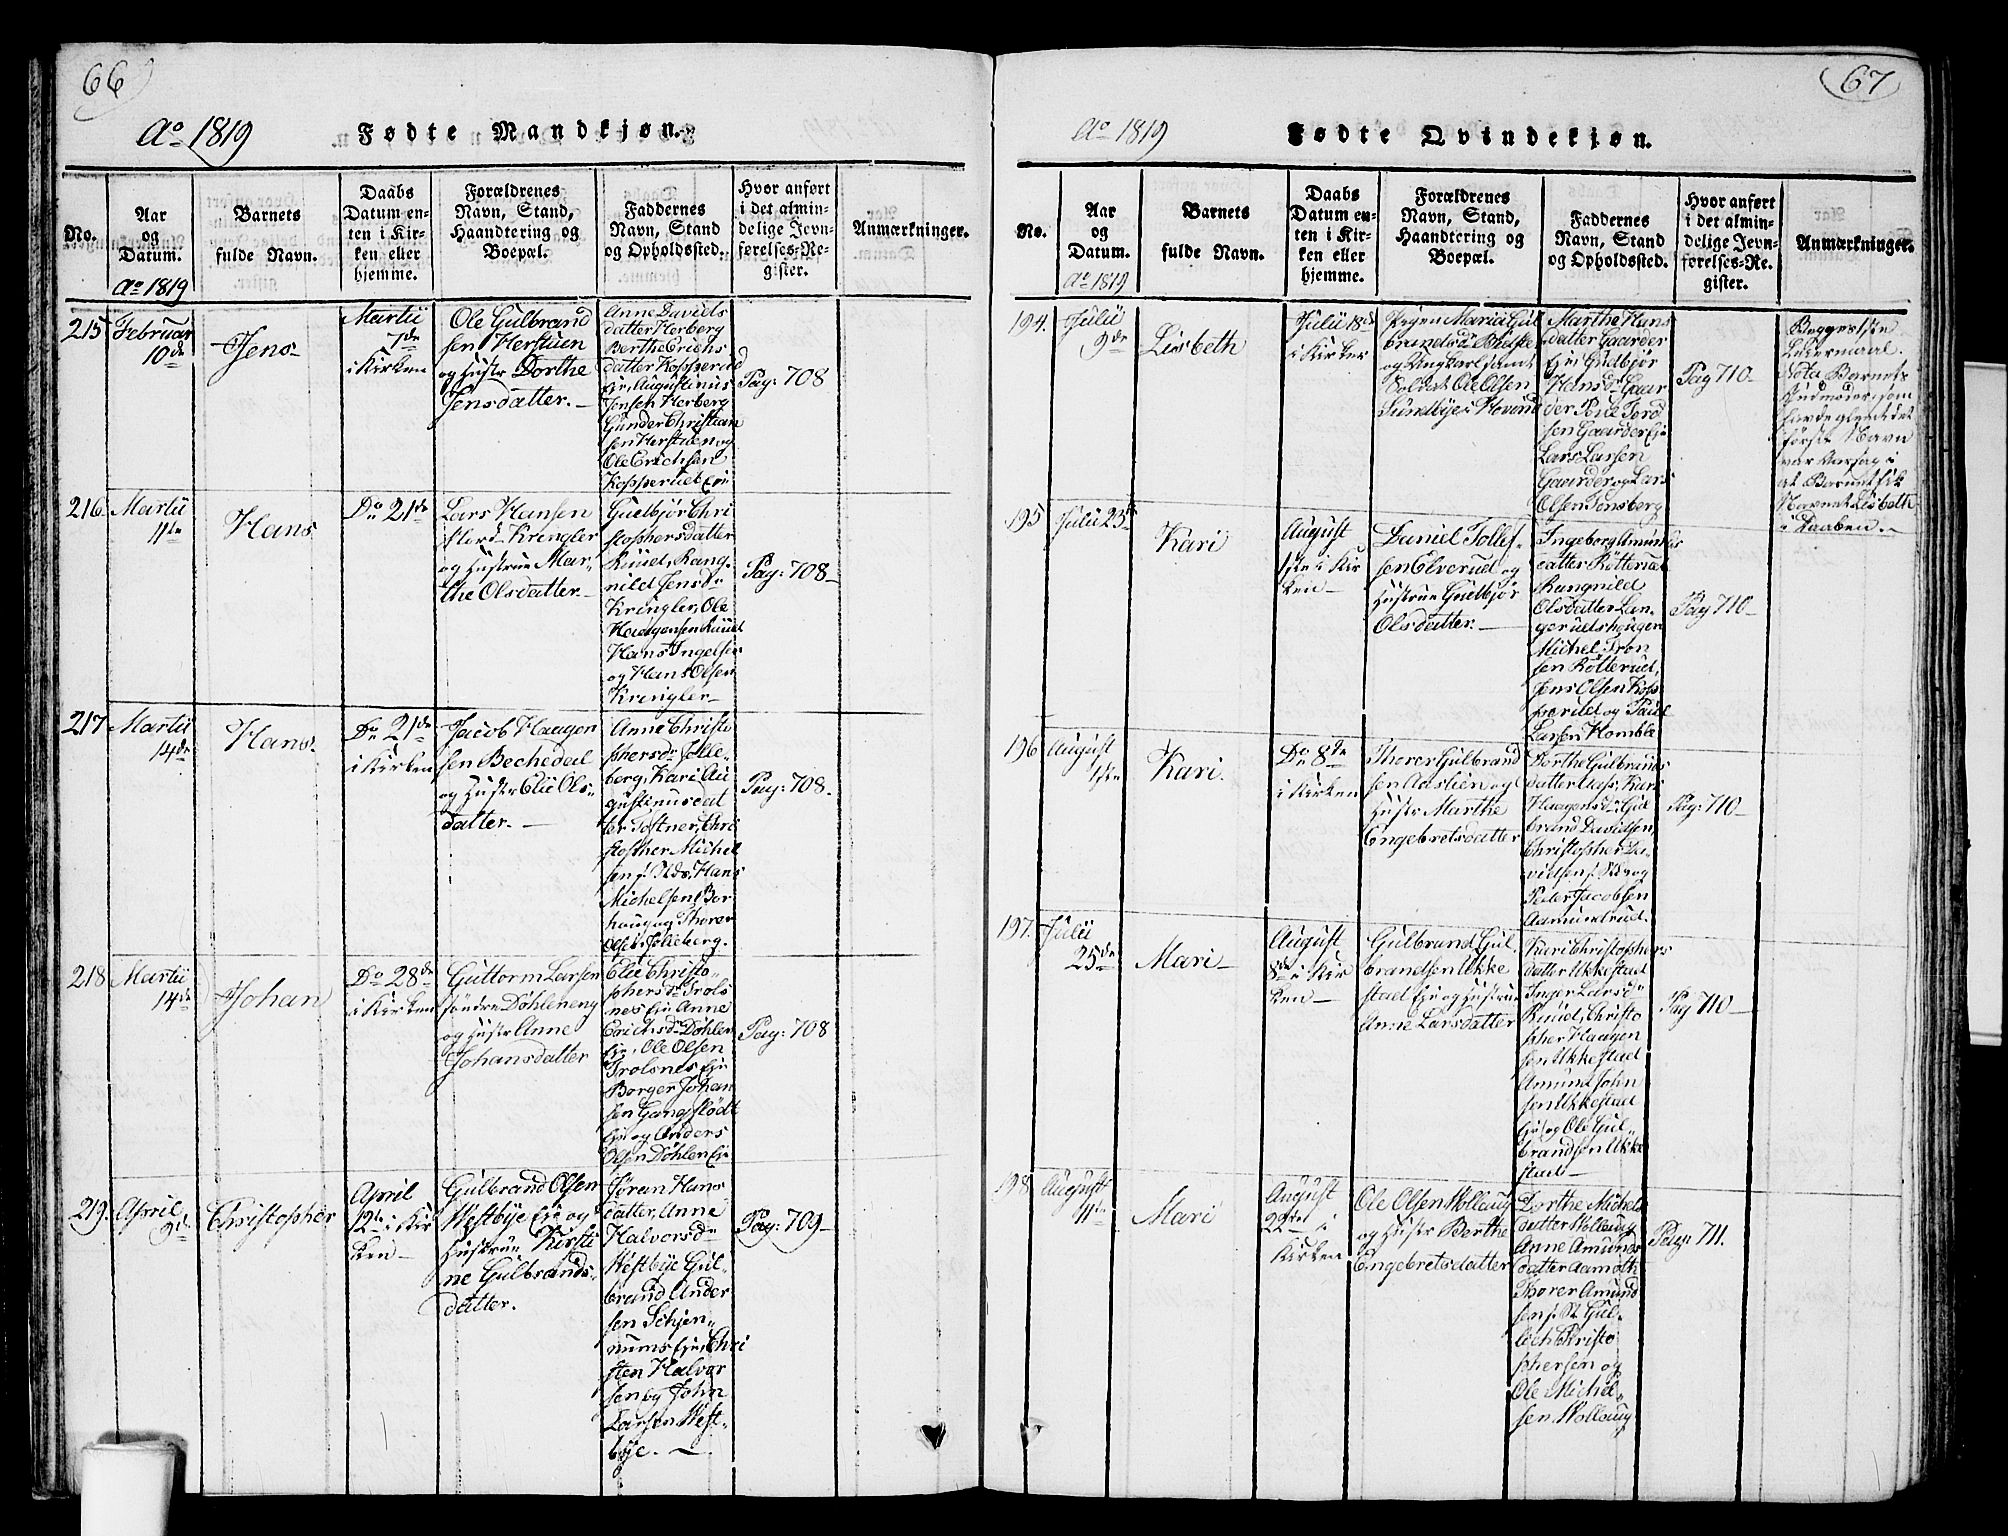 66
Ao 1819
Fødte Mandkjøn.
No.
Aar
og
Datum.
Barnets
fulde Navn.
Daabs
Datum en-
ten i Kir-
ken eller
hjemme.
Forældrenes
Navn, Stand,
Haandtering og
Boepæl.
Faddernes
Navn, Stand
og Opholdssted.
Hvor anført
i det almin-
delige Jevn-
førelses-Re-
gister.
Anmærkninger.
Ao 1819
215
Februar
10de
Jens
Martii
7de
i Kirken
Ole Gulbrand
sen Herstuen
og Hustr Dorthe
Jensdatter.
Anne Davids
datter Herberg
Berthe Erichs
datter Kopperud
Eje, Augustinus
Jensen Herberg
Gunder Christian
sen Herstuen og
Ole Erichsen
Kopperud Eje
Pag: 708
216
Martii
11te
Hans
Do 21de
Lars Hansen
Kringler
og Hustrue Mar-
the Olsdatter.
Guelbjør Chri
stophersdatter
Ruud, Rang-
nild Jensdr
Kringler, Ole
Haagensen Ruud
Hans Ingelsen
og Hans Olsen
Kringler
Pag: 708
217
Martii
14de
Hans
Do 21de
i Kirken
Jacob Haagen
sen Bechedal
og Hustr Elie Ols-
datter.
Anne Christo
phersdr Solle-
berg, Kari Au
gustinusdat
ter Tostner, Chri
stopher Michel
sen Hans
Michelsen Bor
houg og Thorer
Olsen Solleberg.
Pag: 708.
218
Martii
14de
Johan
Do 28de
i Kirken
Guttorm Larsen
søndre Døhleneng
og Hustr Anne
Johansdatter
Elie Christo-
phersdr Trols
nes Eje Anne
Erichsdr Døhlen
Eje, Ole Olsen
Trolsnes Eje
Borger Johan
sen Gangstødt
Eje og Anders
Olsen Døhlen Eje
Pag: 708
219.
April
2de
Christopher
April
12te i Kir
ken
Gulbrand Olsen
Westbye Eje og
Hustrue Kirsti
ne Gulbrands-
datter.
Søren Hans
datter, Anne
Halvorsdr
Westbye Gul-
brand Ander
sen Schjen-
nums Eje, Chri
sten Halvor
sen og John
Larsen West-
bye.
Pag: 709
67
Ao 1819
Fødte Qvindekjøn.
No.
Aar
og
Datum.
Barnets
fulde Navn.
Daabs
Datum en-
ten i Kir-
ken eller
hjemme.
Forældrenes
Navn, Stand,
Haandtering og
Boepæl.
Faddernes
Navn, Stand
og Opholdssted.
Hvor anført
i det almin-
delige Jevn-
førelses-Re-
gister.
Anmærkninger.
Ao 1819
194.
Julii
9de
Lisbeth
Julii 18de
i Kirken
Pigen Maria Gul
brandsdr
og Ungkarl samt
Soldat Ole Olsen
Sundbye i Hovind
Marthe Hans
datter Gaarder
Eje Guelbjør
Hansdr Gaar
der Poul Tord
sen Gaarder Eje
Lars Larsen
Gaarder og Lars
Olsen Tonsberg
Pag 710
Begges 1ste
Leiermaal.
Nota Barnets
Gudmoder, som
havde glemt det
første Navn
var Aarsag i
at Barnet fik
Navnet Lisbeth
i Daaben.
195
Julii 23de
Kari
August
1ste i Kir
ken
Daniel Tollef-
sen Elverud og
Hustrue Guelbjør
Olsdatter.
Ingeborg Amunds
datter Røtterud
Rangnild
Olsdatter Lan-
gerudshougen
Michel Tron
sen Røtterud,
Jens Olsen Kop
perud og Paul
Larsen Homble
Pag 710
196
August
1ste
Kari
Do 8de
i Kirken
Thorer Gulbrand
sen Aastien og
Hustr Marthe
Engebretsdatter
Dorthe Gulbrands
datter Aas, Kari
Haagensdr Gul
brand Davidsen,
Christopher Da-
vidsen og
Peder Jacobsen
Aamundrud.
Pag: 710
197.
Julii
25de
Mari
August
8de i Kir
ken
Gulbrand Gul-
brandsen Ukke
stad Eje og Hustrue
Anne Larsdatter
Kari Christophers
datter Ukkestad
Inger Larsdr
Ruud, Christo
pher Haagen
sen Ukkestad
Amund John
sen Ukkestad
Eje og Ole Gul-
brandsen Ukke
stad
Pag 710
198
August
11te
Mari
August
22de i
Kirken
Ole Olsen Wollaug
og Hustr Berthe
Engebretsdatter
Dorthe Michels
datter Wollaug
Anne Amunds
datter Aamoth
Thorer Amund
sen Gul-
lich Christo
phersen og
Ole Michel-
sen Wollaug
Pag: 711.